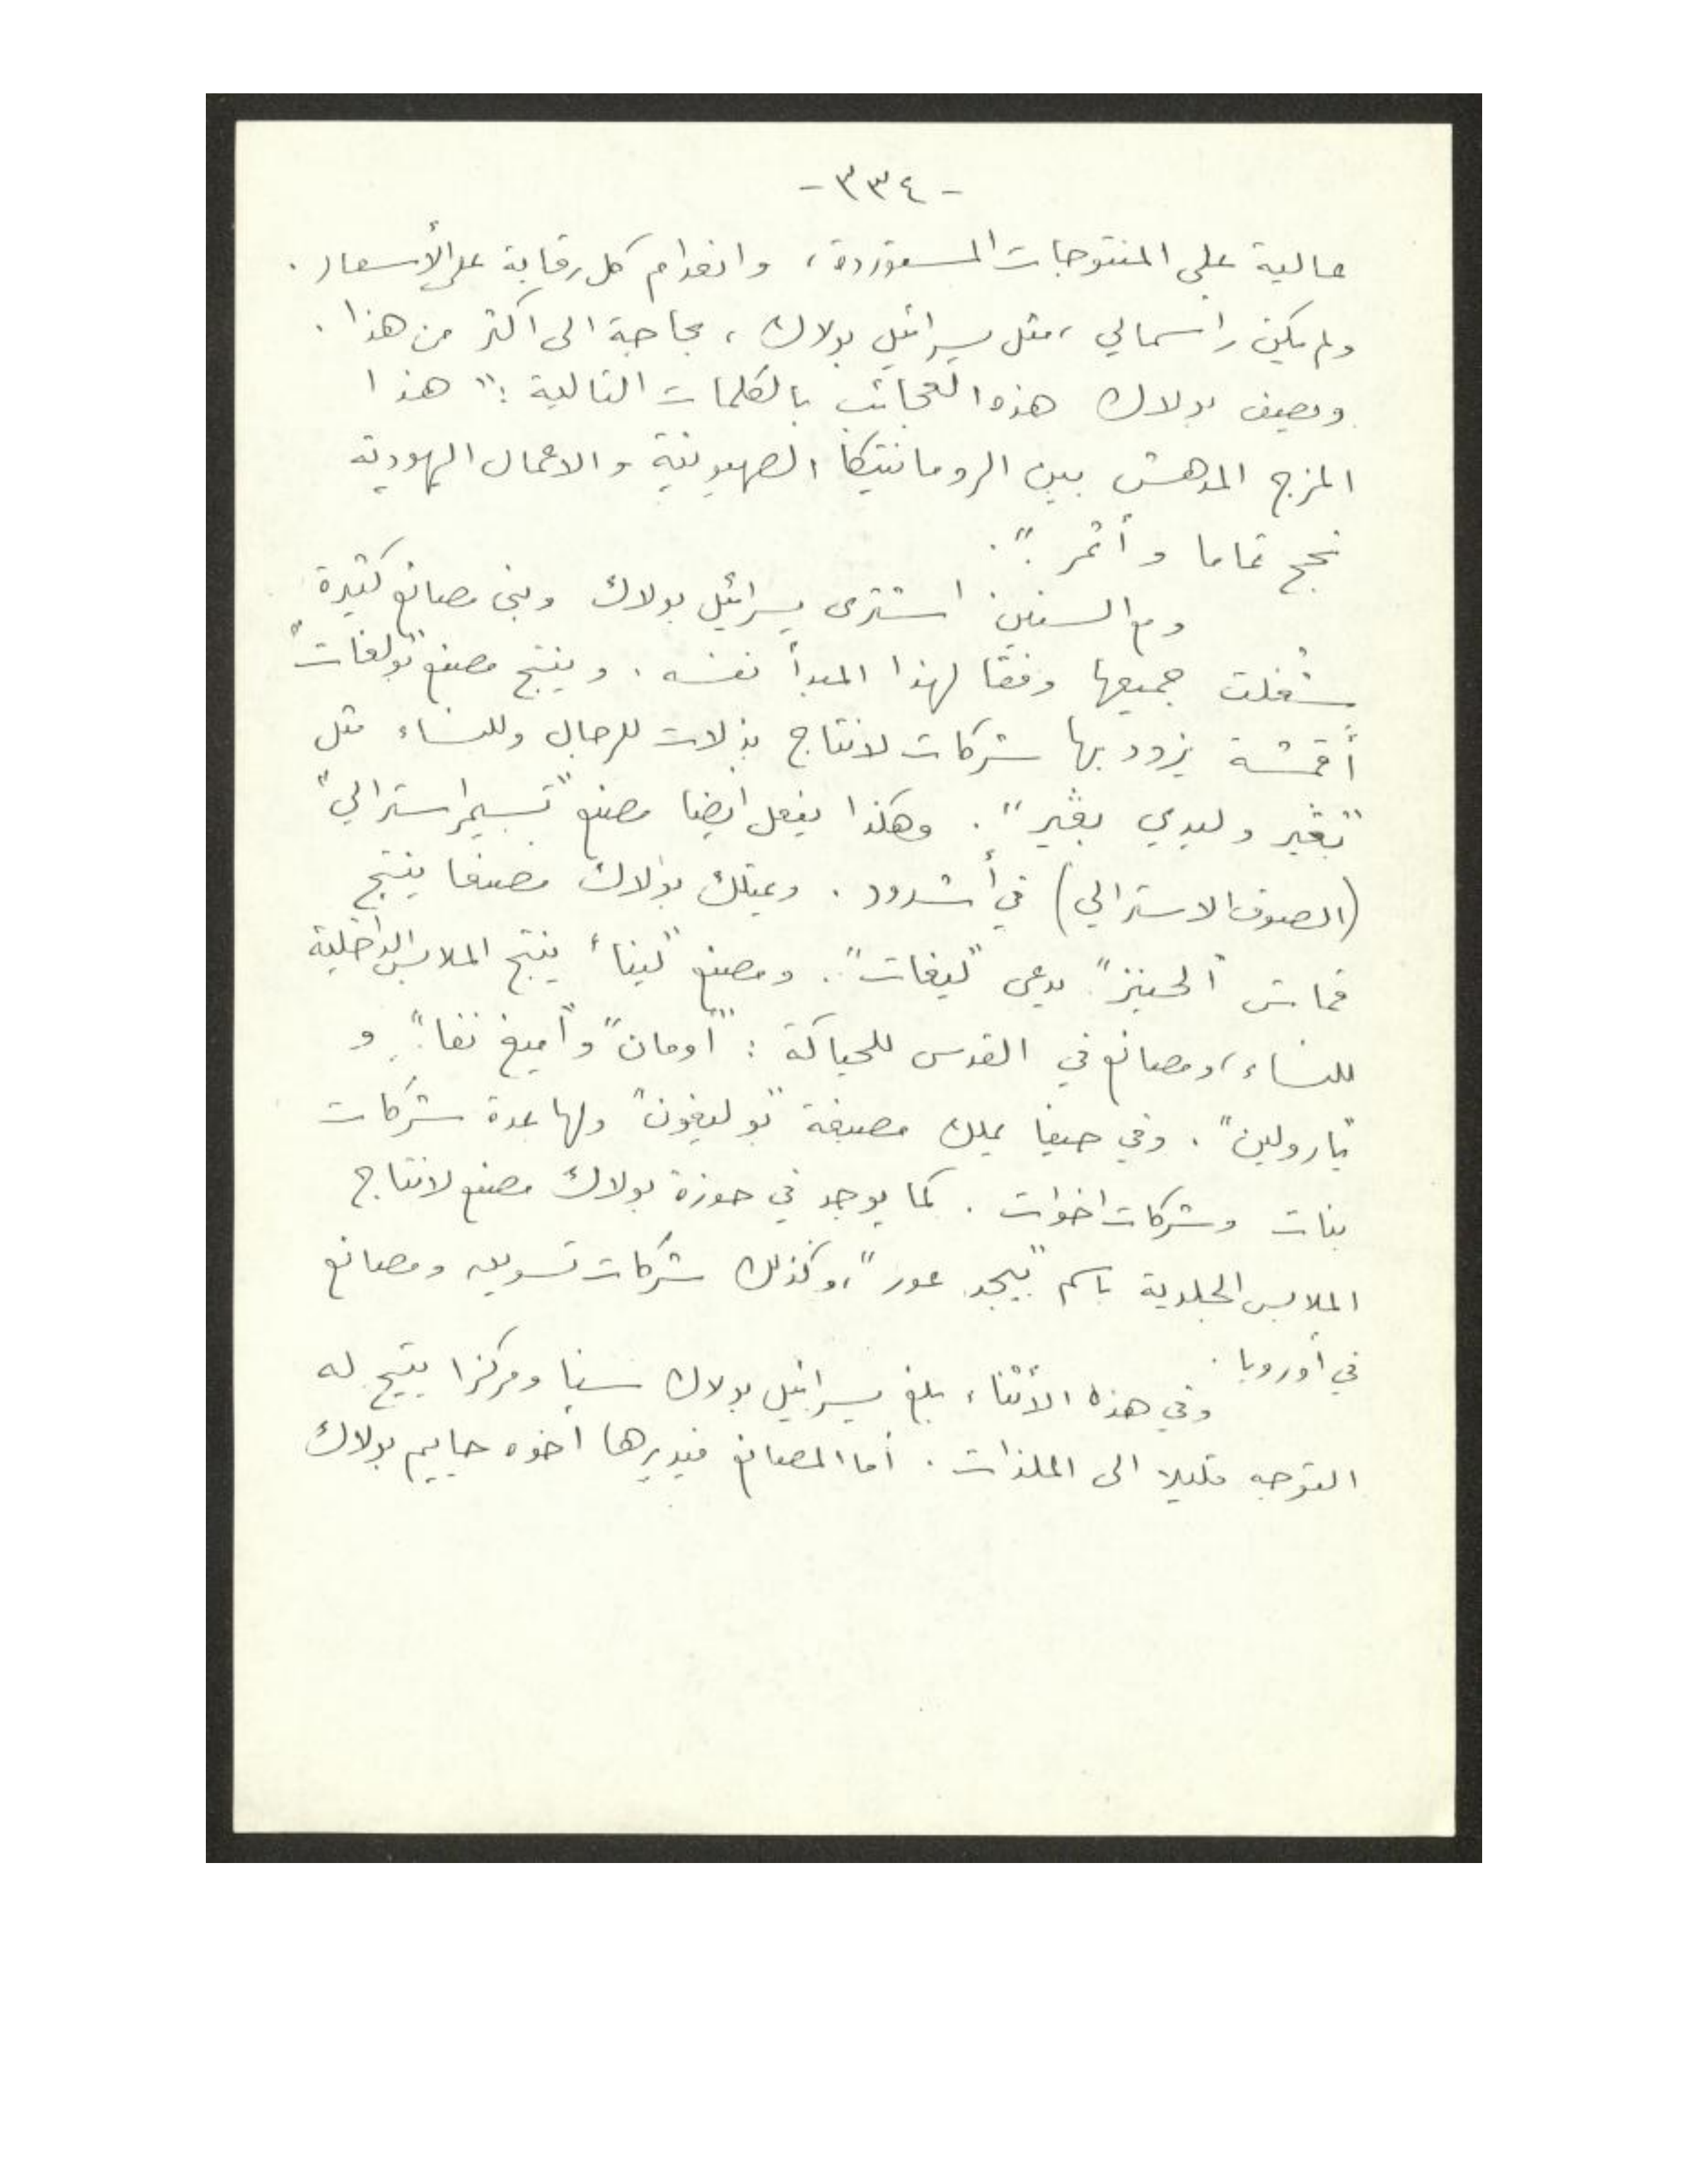 - ٣٣٤ -
عالية على المنتوجات المستوردة، وانعدام كل رقابة على الأسعار.
ولم يكن رأسمالي، مثل يسرائيل بولاك، بحاجة الى اكثر من هذا.
ويصف بولاك هذه العجائب بالكلمات التالية: "هذا
المزج المدهش بين الرومانتيكا الصهيونية والاعمال اليهودية
نجح تماما وأثمر".
ومع السنين اشترى يسرائيل بولاك وبنى مصانع كثيرة
شُغلت جميعها وفقًا لهذا المبدأ نفسه. وينتج مصنع "بولغات"
أقمشة يزود بها شركات لانتاج بذلات للرجال وللنساء مثل
"بغير وليدي بغير". وهكذا يفعل ايضا مصنع "تسيمر استرالي"
(الصوف الاسترالي) في أشدود. ويمتلك بولاك مصنعا ينتج
قماش "الجينز" يدعى "ليغات". ومصنع "لينا" ينتج الملابس الداخلية
للنساء، ومصانع في القدس للحياكة: "أومان" و"أميغ نفا" و
"بارولين". وفي حيفا يملك مصبغة "بوليغون" ولها عدة شركات
بنات وشركات اخوات. كما يوجد في حوزة بولاك مصنع لانتاج
الملابس الجلدية باسم "بيجد عور"، وكذلك شركات تسويق ومصانع
في أوروبا.
وفي هذه الأثناء، بلغ يسرائيل بولاك سنا ومركزا يتيح له
التوجه قليلا الى الملذات. أما المصانع فيديرها أخوه حاييم بولاك